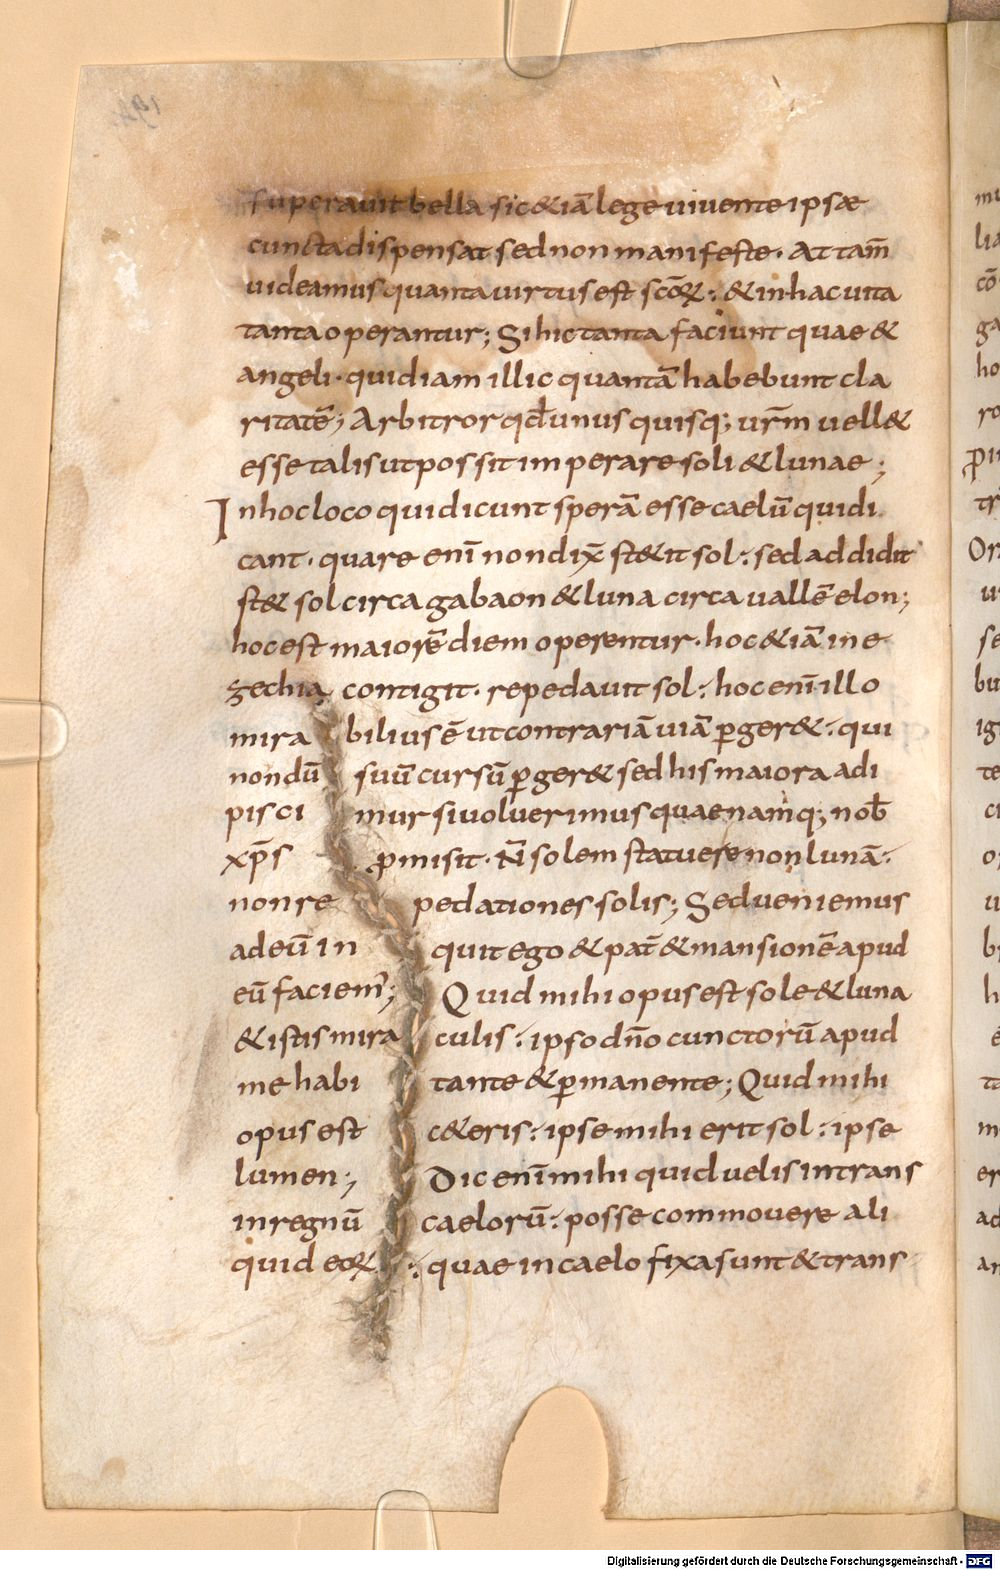 superauit bella sic &iā lege uiuente ipsae
cuncta dispensat sed non manifeste. At tam̄
uideamus quanta uirtus est scōꝝ: & in hac uita
tanta operantur; Si hic tanta faciunt quae &
angeli. quid iam illic quantā habebunt cla
ritatē; Arbitror qđ unus quisq; ur̄m uell&
esse talis ut possit imperare soli & lunae;
In hoc loco quid dicunt sperā esse caelū quidi
cant. quare enī non dix̄ st&it sol: sed addidit
st& sol circa gabaon & luna circa uallē elon;
hoc est maiorē diem operentur. hoc &iā in e
zechia contigit. repedauit sol: hoc enī illo
mirabilius ē ut contrariā uiā ꝑger&: qui
nondū suū cursū ꝑger& sed his maiora adi
piscimur si uoluerimus quae namq; nob̄
xp̄s ꝓmisit. N̄ solem statuere non lunā:
non repedationes solis; Sed ueniemus
ad eū inquit ego & pat̄ & mansionē apud
eū faciem'; Quid mihi opus est sole & luna
& istis miraculis: ipso dn̄o cunctorū apud
me habitante & ꝑmanente; Quid mihi
opus est c&eris: ipse mihi erit sol: ipse
lumen; Dic enī mihi quid uelis intrans
in regnū caelorū: posse commouere ali
quid eoꝝ: quae in caelo fixa sunt & trans
Digitalisierung gefördert durch die Deutsche Forschungsgemeinschaft - DFG